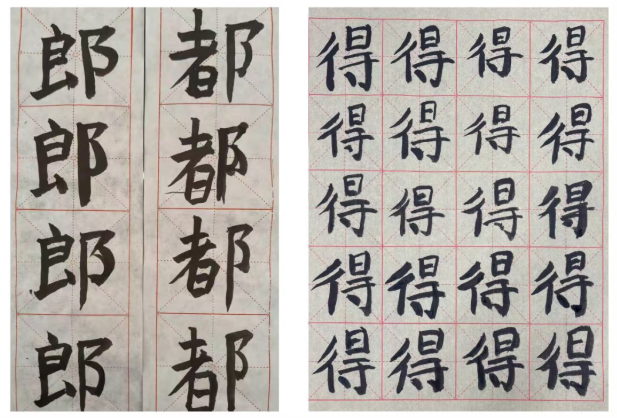 郎 都
郎 都
郎 都
郎 都
得 得 得 得
得 得 得 得
得 得 得 得
得 得 得 得
得 得 得 得